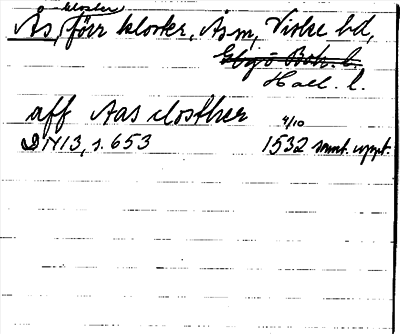 kloster
Ås, förr kloster, Ås m, Viske hd,
Hall. l.
aff Aas closther
4/10
DN 13, s. 653 1532 samt. uppt.